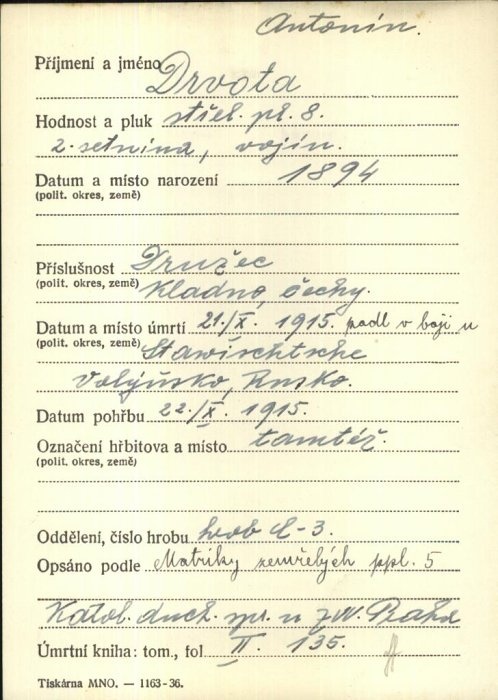 Antonín.
Příjmení a jméno Drvota
Hodnost a pluk střel. pl. 8.
2. setnina, vojín.
Datum a místo narození 1894
(polit. okres, země)
Příslušnost Družec
(polit. okres, země) Kladno, Čechy.
Datum a místo úmrtí 21./X. 1915. padl v boji u
(polit. okres, země) Stawischtsche
Volyňsko, Rusko.
Datum pohřbu 22./X. 1915.
Označení hřbitova a místo tamtéž.
(polit. okres, země)
Oddělení, číslo hrobu hrob č-3.
Opsáno podle Matriky zemřelých ppl. 5
Katol. duch. spr. u
Úmrtní kniha: tom., fol II. 135.
Tiskárna MNO. — 1163-36.